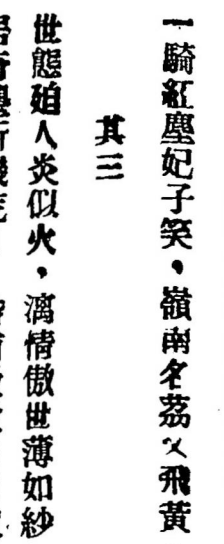 一騎紅塵妃子笑，嶺南名荔又飛黃
其三
世態殆人炎似火，漓情傲世薄如紗